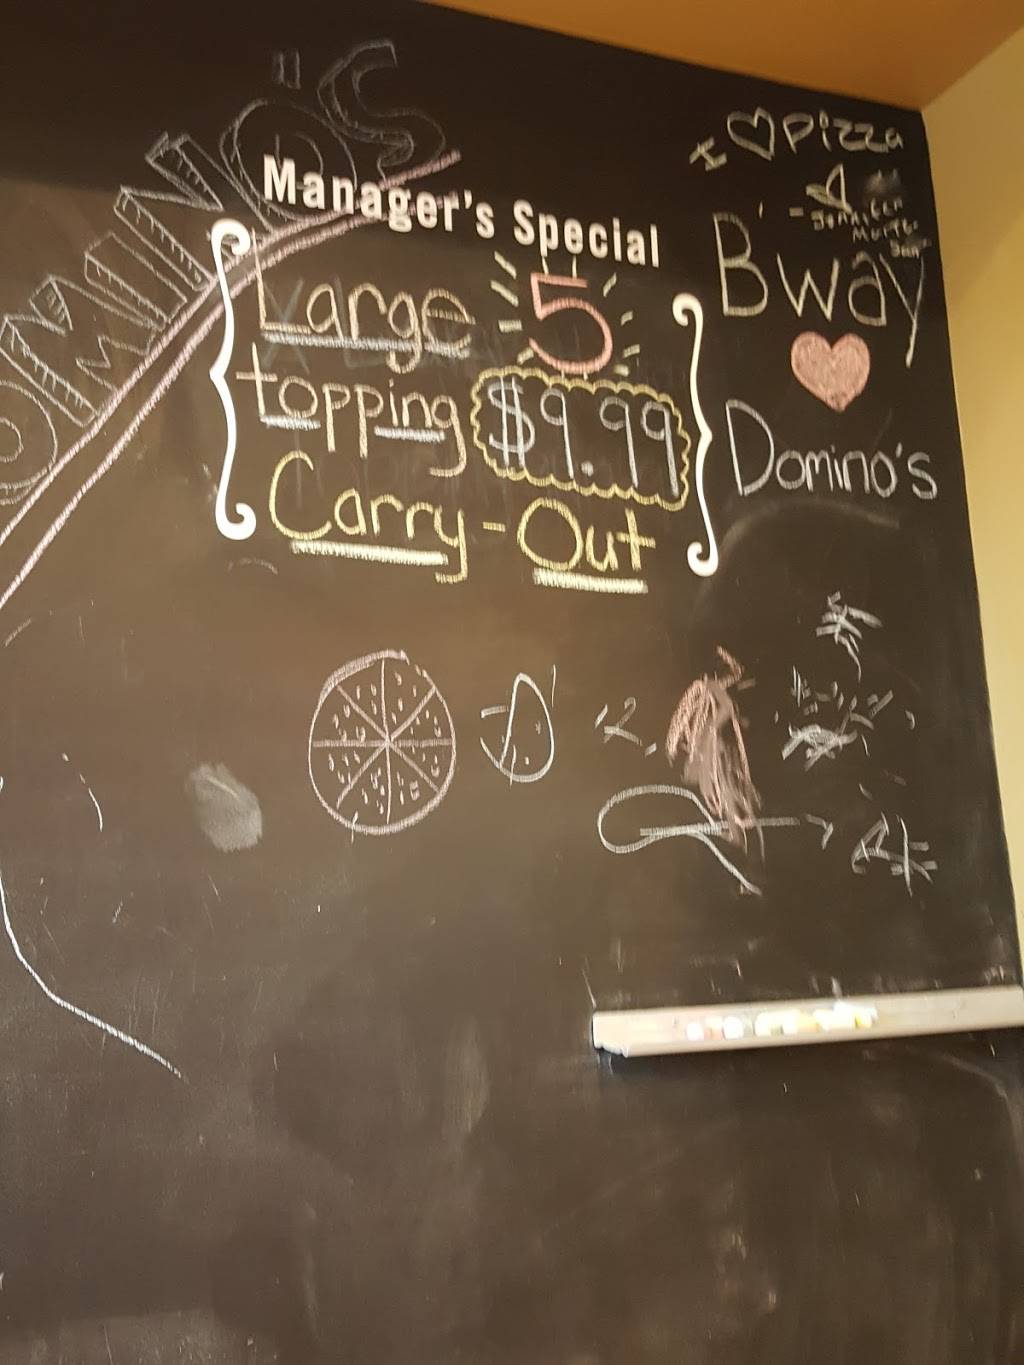 OMINO"S
Manager's Special
Large 5
topping $9.99
Carry-Out
I ♡ pizza
B'way
Domino's